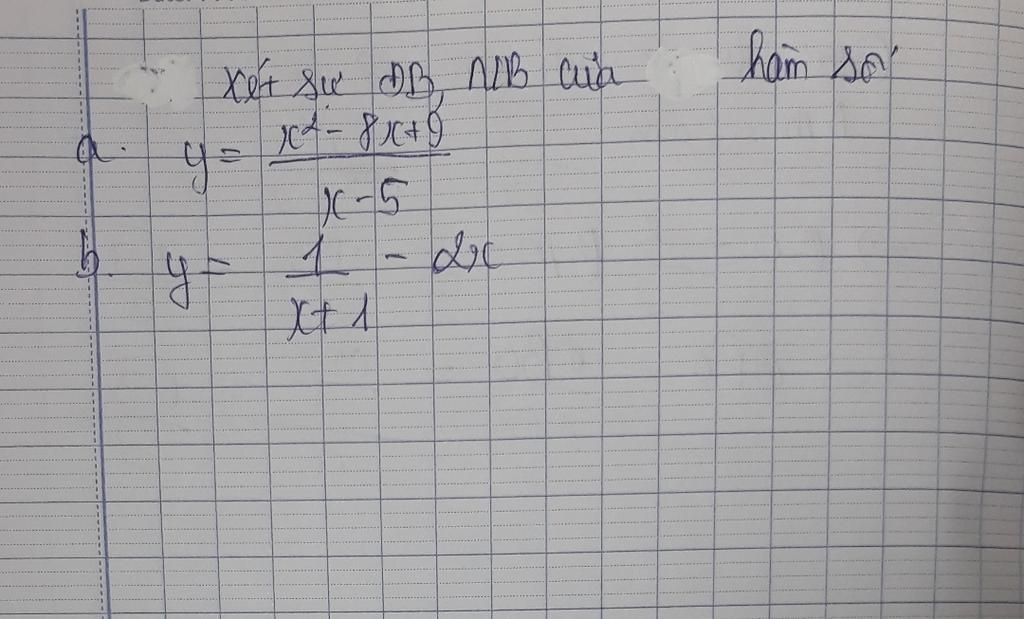 xét sự ĐB, NB của hàm số
a. y = \frac{x² - 8x + 9}{x - 5}
b. y = \frac{1}{x + 1} - 2x